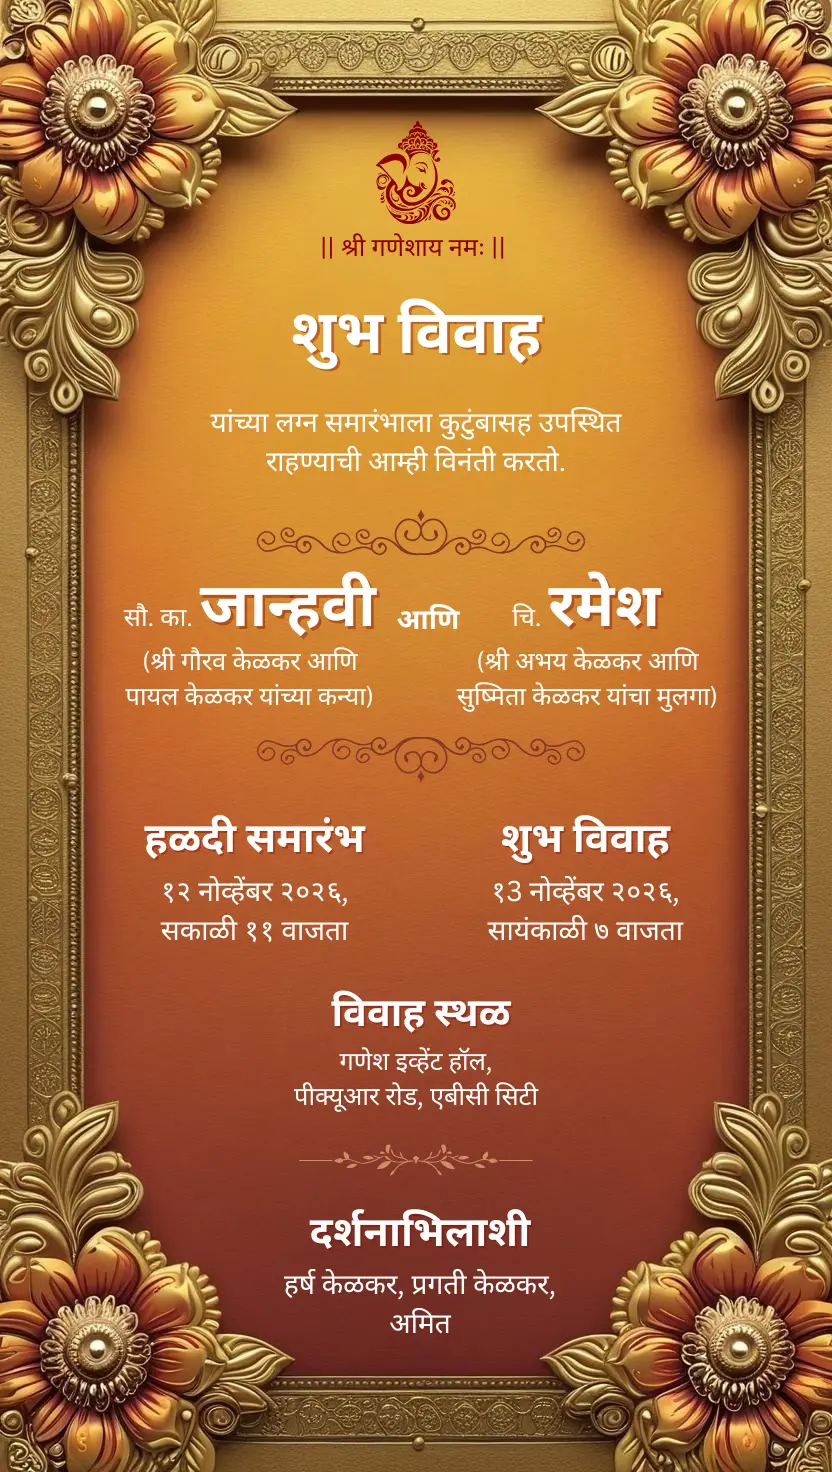 || श्री गणेशाय नमः ||
शुभ विवाह
यांच्या लग्न समारंभाला कुटुंबासह उपस्थित
राहण्याची आम्ही विनंती करतो.
सौ. का. जान्हवी आणि चि. रमेश
(श्री गौरव केळकर आणि
पायल केळकर यांच्या कन्या)
(श्री अभय केळकर आणि
सुष्मिता केळकर यांचा मुलगा)
हळदी समारंभ
१२ नोव्हेंबर २०२६,
सकाळी ११ वाजता
शुभ विवाह
१3 नोव्हेंबर २०२६,
सायंकाळी ७ वाजता
विवाह स्थळ
गणेश इव्हेंट हॉल,
पीक्यूआर रोड, एबीसी सिटी
दर्शनाभिलाशी
हर्ष केळकर, प्रगती केळकर,
अमित